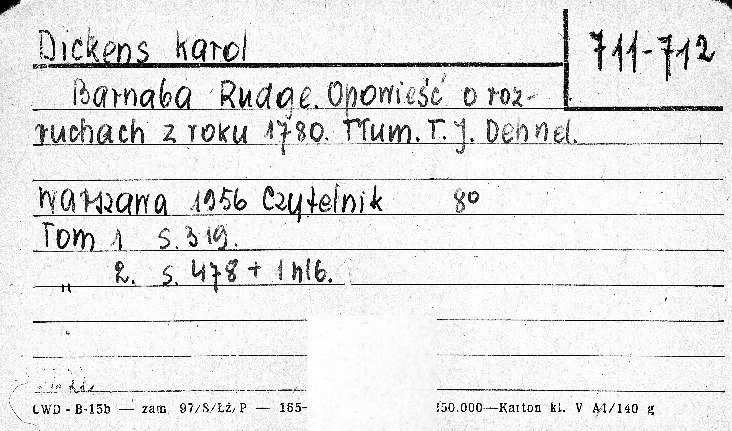 Dickens Karol
711-712
Barnaba Rudge. Opowieść o roz-
ruchach z roku 1780. Tłum. T. J. Dehnel.
Warszawa 1956 Czytelnik 8°
Tom 1 s. 319.
" 2. s. 478 + 1 nlb.
CWD - B-15b — zam. 97/S/ŁŻ/P — 165- 50.000—Karton kl. V A1/140 g